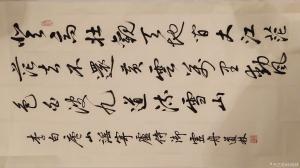 登高壮觀天地間大江茫
茫去不還黄雲萬里動風
色白波九道流雪山
李白廬山謡寄盧侍御虚舟道林